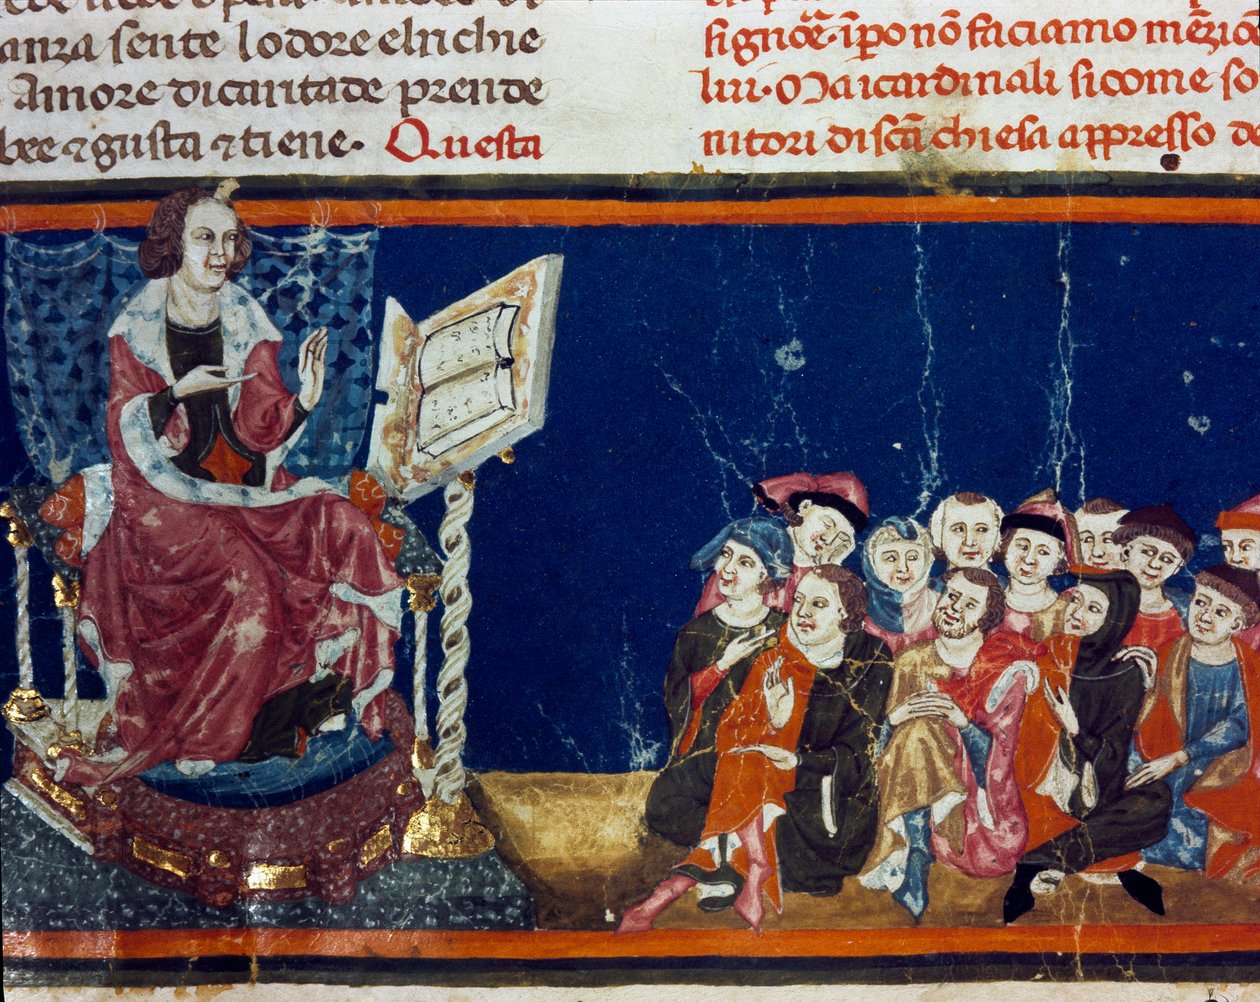 anza sente lodore elnichie
Amore dicaritade prende
bee ⁊ gusta ⁊ tiene. Questa
signõe. ĩpo nõ faciamo mẽzio
lui. Mai cardinali sicome so
nitori di scã chiesa appresso d